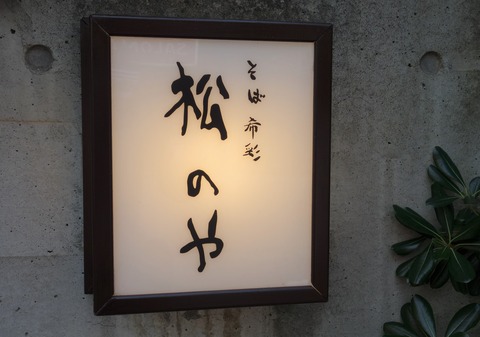 そば 希彩
松のや